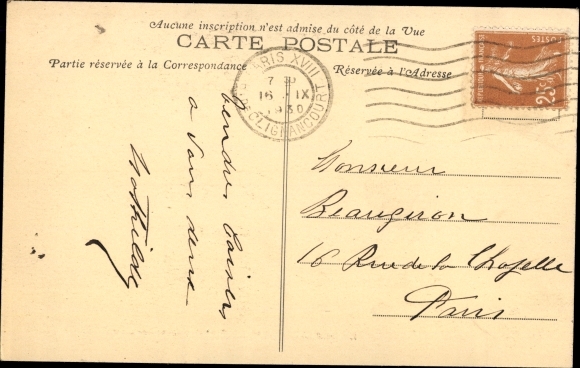 Aucune inscription n'est admise du côté de la Vue
CARTE POSTALE
Partie réservée à la Correspondance
Réservée à l'Adresse
PARIS XVIII
7 30
16 IX
1930
R. CLIGNANCOURT
25c
POSTES
tendres baisers
a vous deux
Mathilde
Monsieur
Beaugison
16 Rue de la Chapelle
Paris